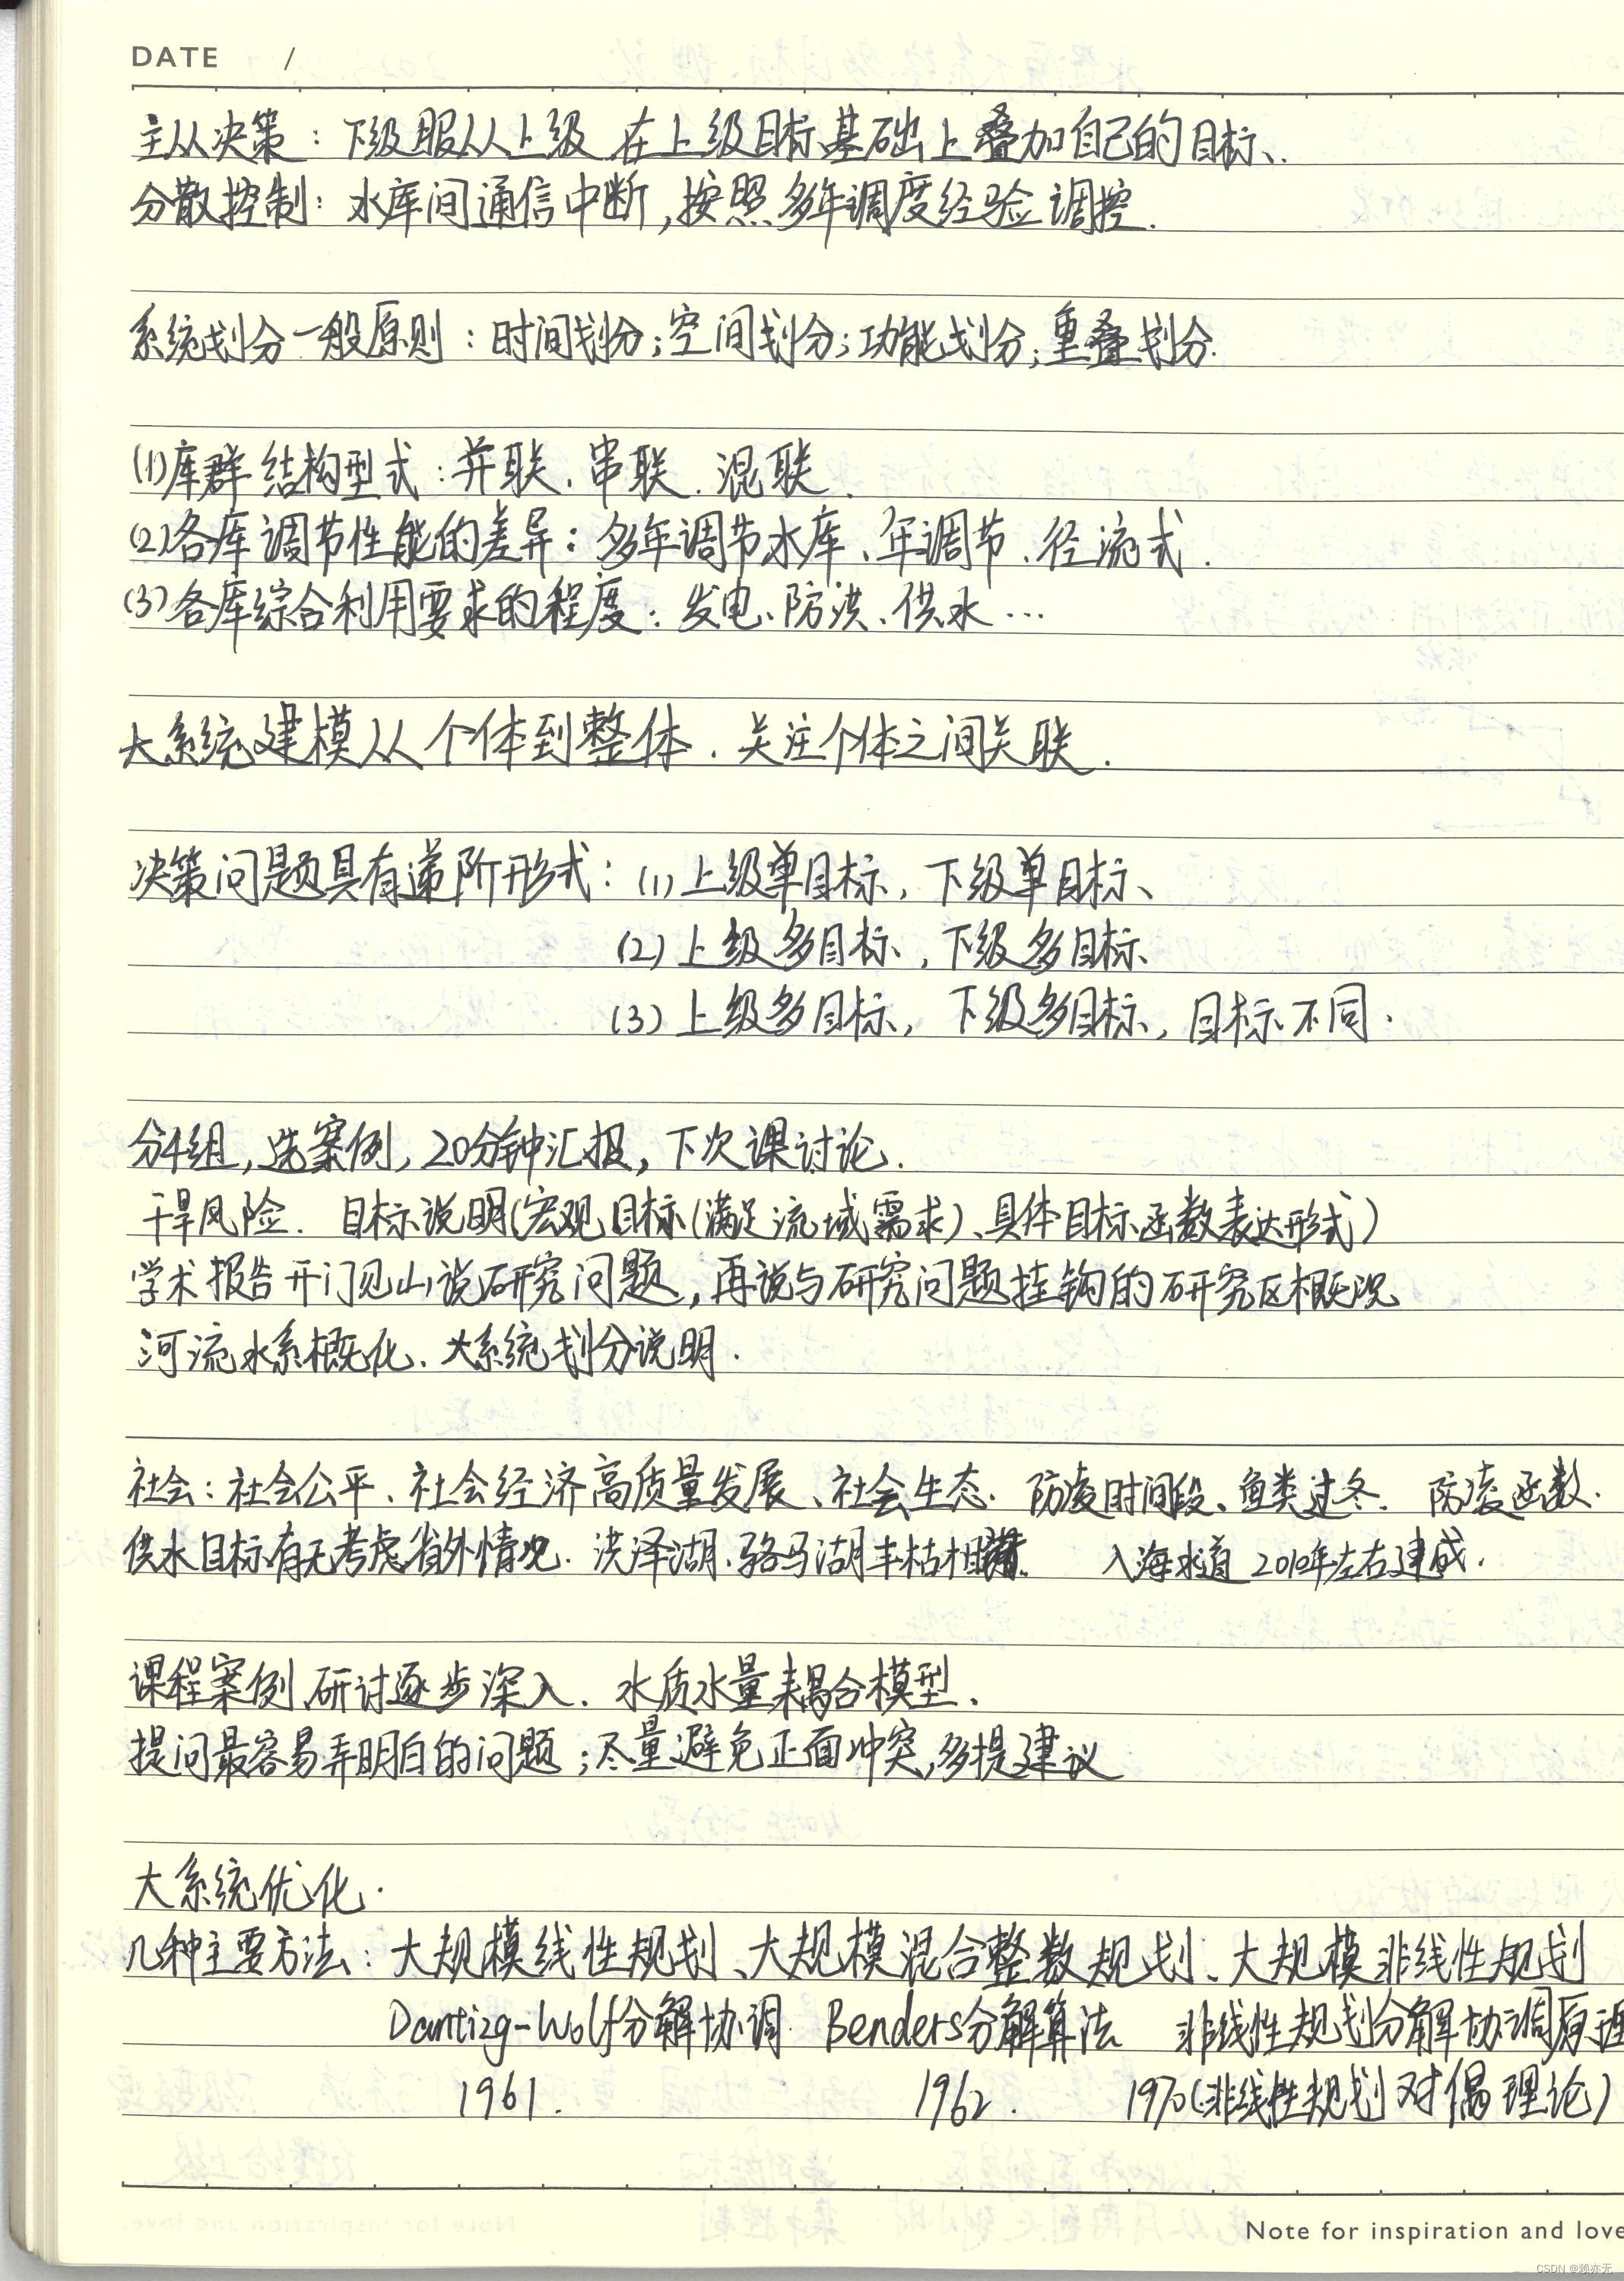 DATE /
主从决策：下级服从上级 在上级目标基础上叠加自己的目标.
分散控制：水库间通信中断，按照多年调度经验调控.
系统划分一般原则：时间划分；空间划分；功能划分；重叠划分.
(1)库群结构型式：并联、串联、混联.
(2)各库调节性能的差异：多年调节水库、年调节、径流式.
(3)各库综合利用要求的程度：发电、防洪、供水…
大系统建模从个体到整体.关注个体之间关联.
决策问题具有递阶形式：(1)上级单目标，下级单目标、
(2)上级多目标，下级多目标
(3)上级多目标，下级多目标，目标不同.
分4组，选案例，20分钟汇报，下次课讨论.
干旱风险. 目标说明(宏观目标(满足流域需求)、具体目标函数表达形式)
学术报告开门见山说研究问题，再说与研究问题挂钩的研究区概况
河流水系概化、大系统划分说明.
社会：社会公平、社会经济高质量发展、社会生态. 防凌时间段、鱼类过冬. 防凌函数.
供水目标有无考虑省外情况. 洪泽湖、骆马湖丰枯相 入海水道 2010年左右建成.
课程案例研讨逐步深入. 水质水量耦合模型.
提问最容易弄明白的问题；尽量避免正面冲突，多提建议
大系统优化.
几种主要方法：大规模线性规划、大规模混合整数规划、大规模非线性规划
Dantizg-Wolf分解协调 Benders分解算法 非线性规划分解协调原理
1961. 1962. 1970(非线性规划对偶理论)
Note for inspiration and love
CSDN @赖亦无